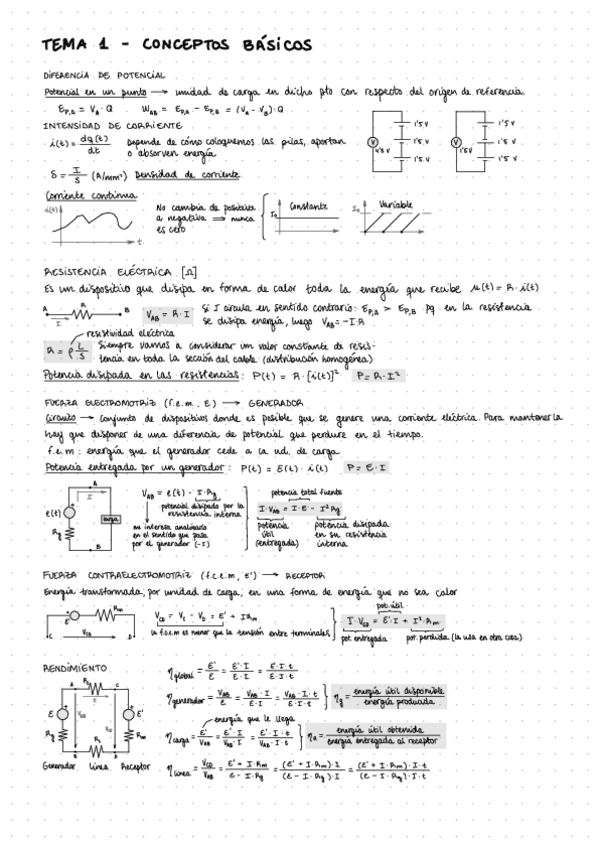 TEMA 1 - CONCEPTOS BÁSICOS
DIFERENCIA DE POTENCIAL
Potencial en un punto → unidad de carga en dicho pto con respecto del origen de referencia
E_P,A = V_A · Q W_AB = E_P,A - E_P,B = (V_A - V_B) · Q
INTENSIDAD DE CORRIENTE
i(t) = dq(t)/dt Depende de cómo coloquemos las pilas, aportan
o absorven energía
V 4'5 V 1'5 V 1'5 V 1'5 V
V 1'5 V 1'5 V 1'5 V 1'5 V
δ = I/S (A/mm²) Densidad de corriente
Corriente continua
i(t) t
No cambia de positiva
a negativa ⇒ nunca
es cero
I₀ Constante
I₀ Variable
RESISTENCIA ELÉCTRICA [Ω]
Es un dispositivo que disipa en forma de calor toda la energía que recibe u(t) = R · i(t)
A R B I
V_AB = R · I
Si I circula en sentido contrario: E_P,A > E_P,B pq en la resistencia
se disipa energía, luego V_AB = -I · R
resistividad eléctrica
R = ρ L/S Siempre vamos a considerar un valor constante de resis-
tencia en toda la sección del cable (distribución homogénea)
Potencia disipada en las resistencias: P(t) = R · [i(t)]² P = R · I²
FUERZA ELECTROMOTRIZ (f.e.m, E) → GENERADOR
Circuito → conjunto de dispositivos donde es posible que se genere una corriente eléctrica. Para mantenerla
hay que disponer de una diferencia de potencial que perdure en el tiempo.
f.e.m: energía que el generador cede a la ud. de carga
Potencia entregada por un generador: P(t) = E(t) · i(t) P = E · I
A I e(t) R_g carga B
V_AB = e(t) - I · R_g
potencial disipado por la
resistencia interna
me interesa analizarlo
en el sentido que pasa
por el generador (-I)
potencia total fuente
I · V_AB = I · E - I² R_g
potencia
útil
(entregada)
potencia disipada
en su resistencia
interna
FUERZA CONTRAELECTROMOTRIZ (f.c.e.m, E') → RECEPTOR
Energía transformada, por unidad de carga, en una forma de energía que no sea calor
E' R_m C V_CD D
V_CD = V_C - V_D = E' + I R_m
la f.c.e.m es menor que la tensión entre terminales
pot. útil
I · V_CD = E' · I + I² · R_m
pot entregada pot. perdida (la usa en otra cosa)
RENDIMIENTO
A R_L C E E' R_g R_m B R_L D
Generador Línea Receptor
η global = E'/E = E' · I/E · I = E' · I · t/E · I · t
η generador = V_AB/E = V_AB · I/E · I = V_AB · I · t/E · I · t
η_g = energía útil disponible/energía producida
energía que le llega
η carga = E'/V_AB = E' · I/V_AB · I = E' · I · t/V_AB · I · t
η_R = energía útil obtenida/energía entregada al receptor
η línea = V_CD/V_AB = E' + I · R_m/E - I · R_g = (E' + I · R_m) · I/(E - I · R_g) · I = (E' + I · R_m) · I · t/(E - I · R_g) · I · t